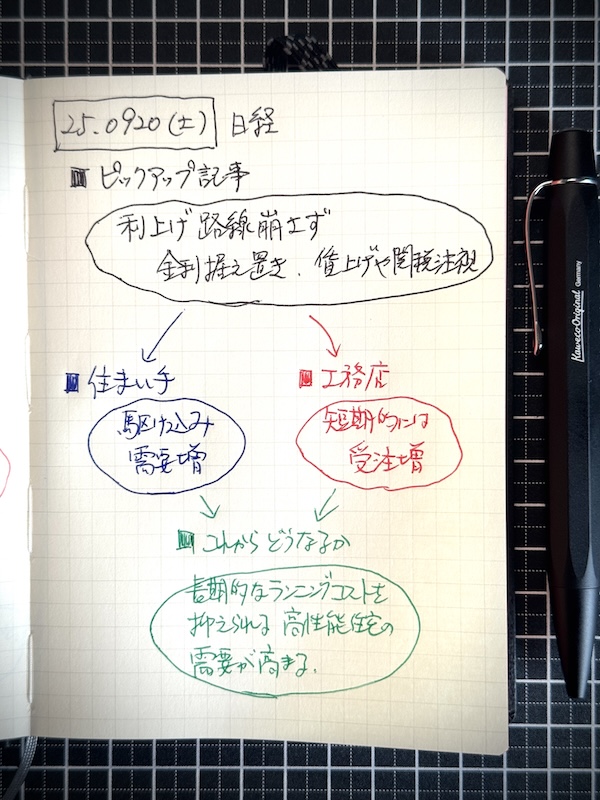 25.0920(土) 日経
■ ピックアップ記事
利上げ路線崩さず
金利据え置き、賃上げや関税注視
■ 住まい手
駆け込み
需要増
■ 工務店
短期的には
受注増
■ これからどうなるか
長期的なランニングコストを
抑えられる高性能住宅の
需要が高まる.
Kaweco Original Germany